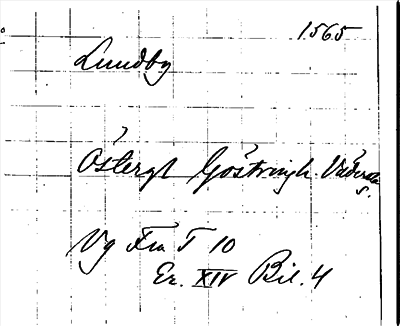 1565
Lundby
Östergl Göstringh. Väderstad
s.
Vg Fra T 10
Er. XIV Bil. 4